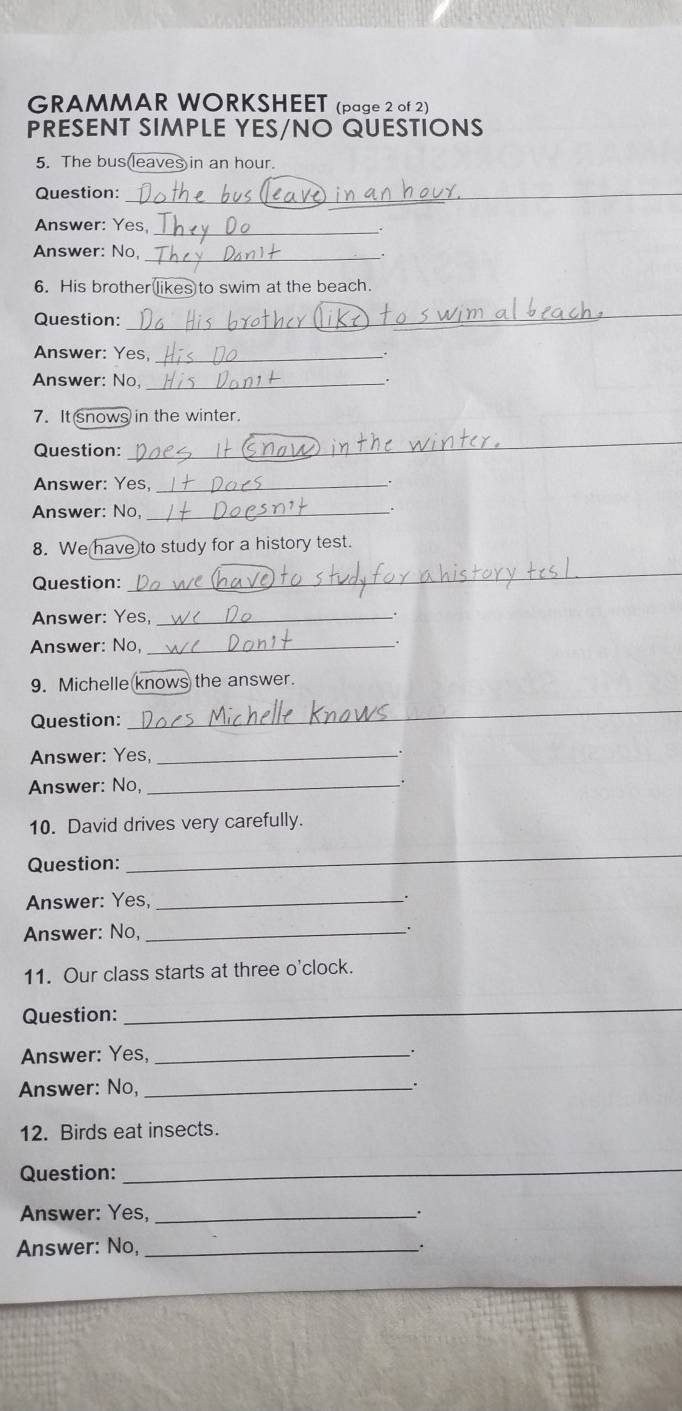 GRAMMAR WORKSHEET (page 2 of 2)
PRESENT SIMPLE YES/NO QUESTIONS
5. The bus leaves in an hour.
Question: Do the bus leave in an hour.
Answer: Yes, They Do.
Answer: No, They Don't.
6. His brother likes to swim at the beach.
Question: Do His brother like to swim al beach.
Answer: Yes, His Do.
Answer: No, His Don't.
7. It snows in the winter.
Question: Does It snow in the winter.
Answer: Yes, It Does.
Answer: No, It Doesn't.
8. We have to study for a history test.
Question: Do we have to study for a history test.
Answer: Yes, we Do.
Answer: No, we Don't.
9. Michelle knows the answer.
Question: Does Michelle Knows
Answer: Yes, .
Answer: No, .
10. David drives very carefully.
Question:
Answer: Yes, .
Answer: No, .
11. Our class starts at three o'clock.
Question:
Answer: Yes, .
Answer: No, .
12. Birds eat insects.
Question:
Answer: Yes, .
Answer: No, .